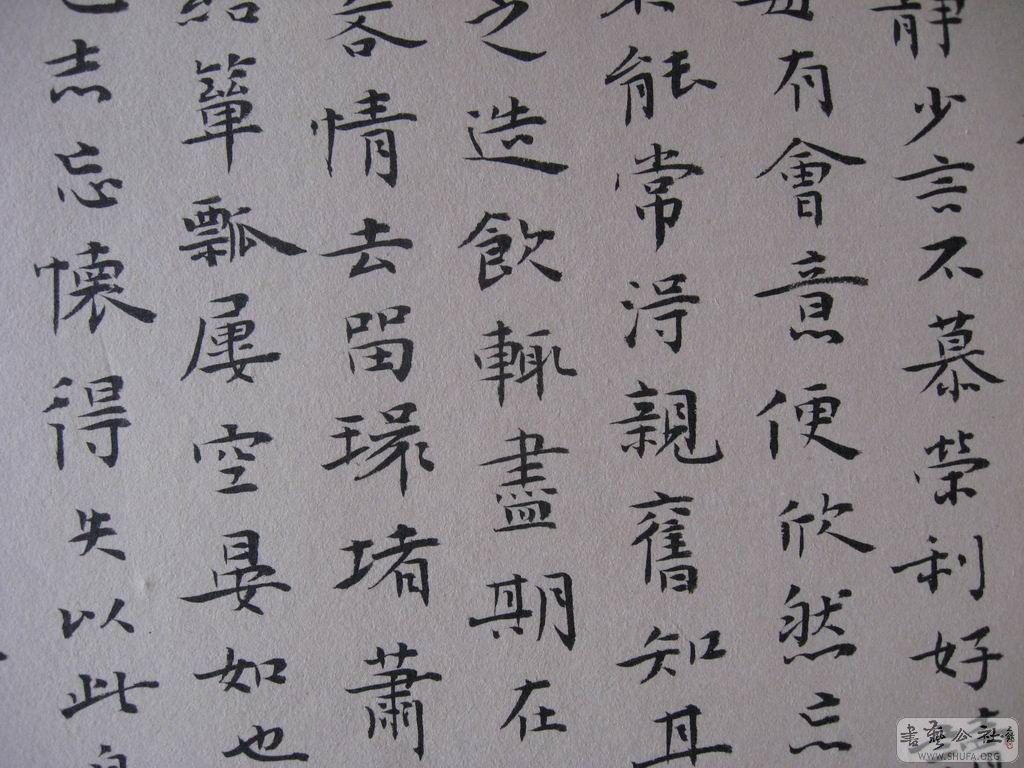 静少言不慕榮利好
每有會意便欣然忘
不能常得親舊知其
之造飲輒盡期在
吝情去留環堵蕭
結簞瓢屢空晏如也
己志忘懷得失以此自
書藝公社
WWW.SHUFA.ORG